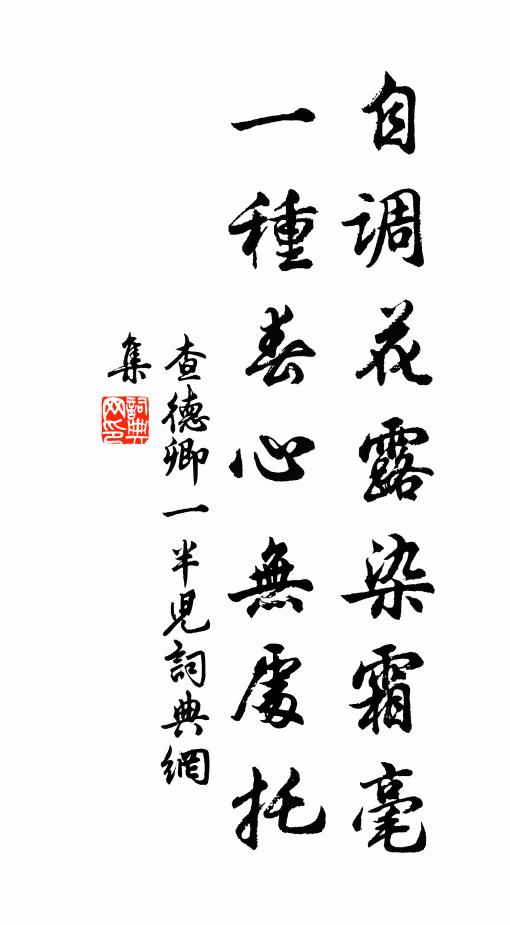 自调花露染霜毫
一種春心無處托
查德卿一半児詞典網
集
詞典
网印